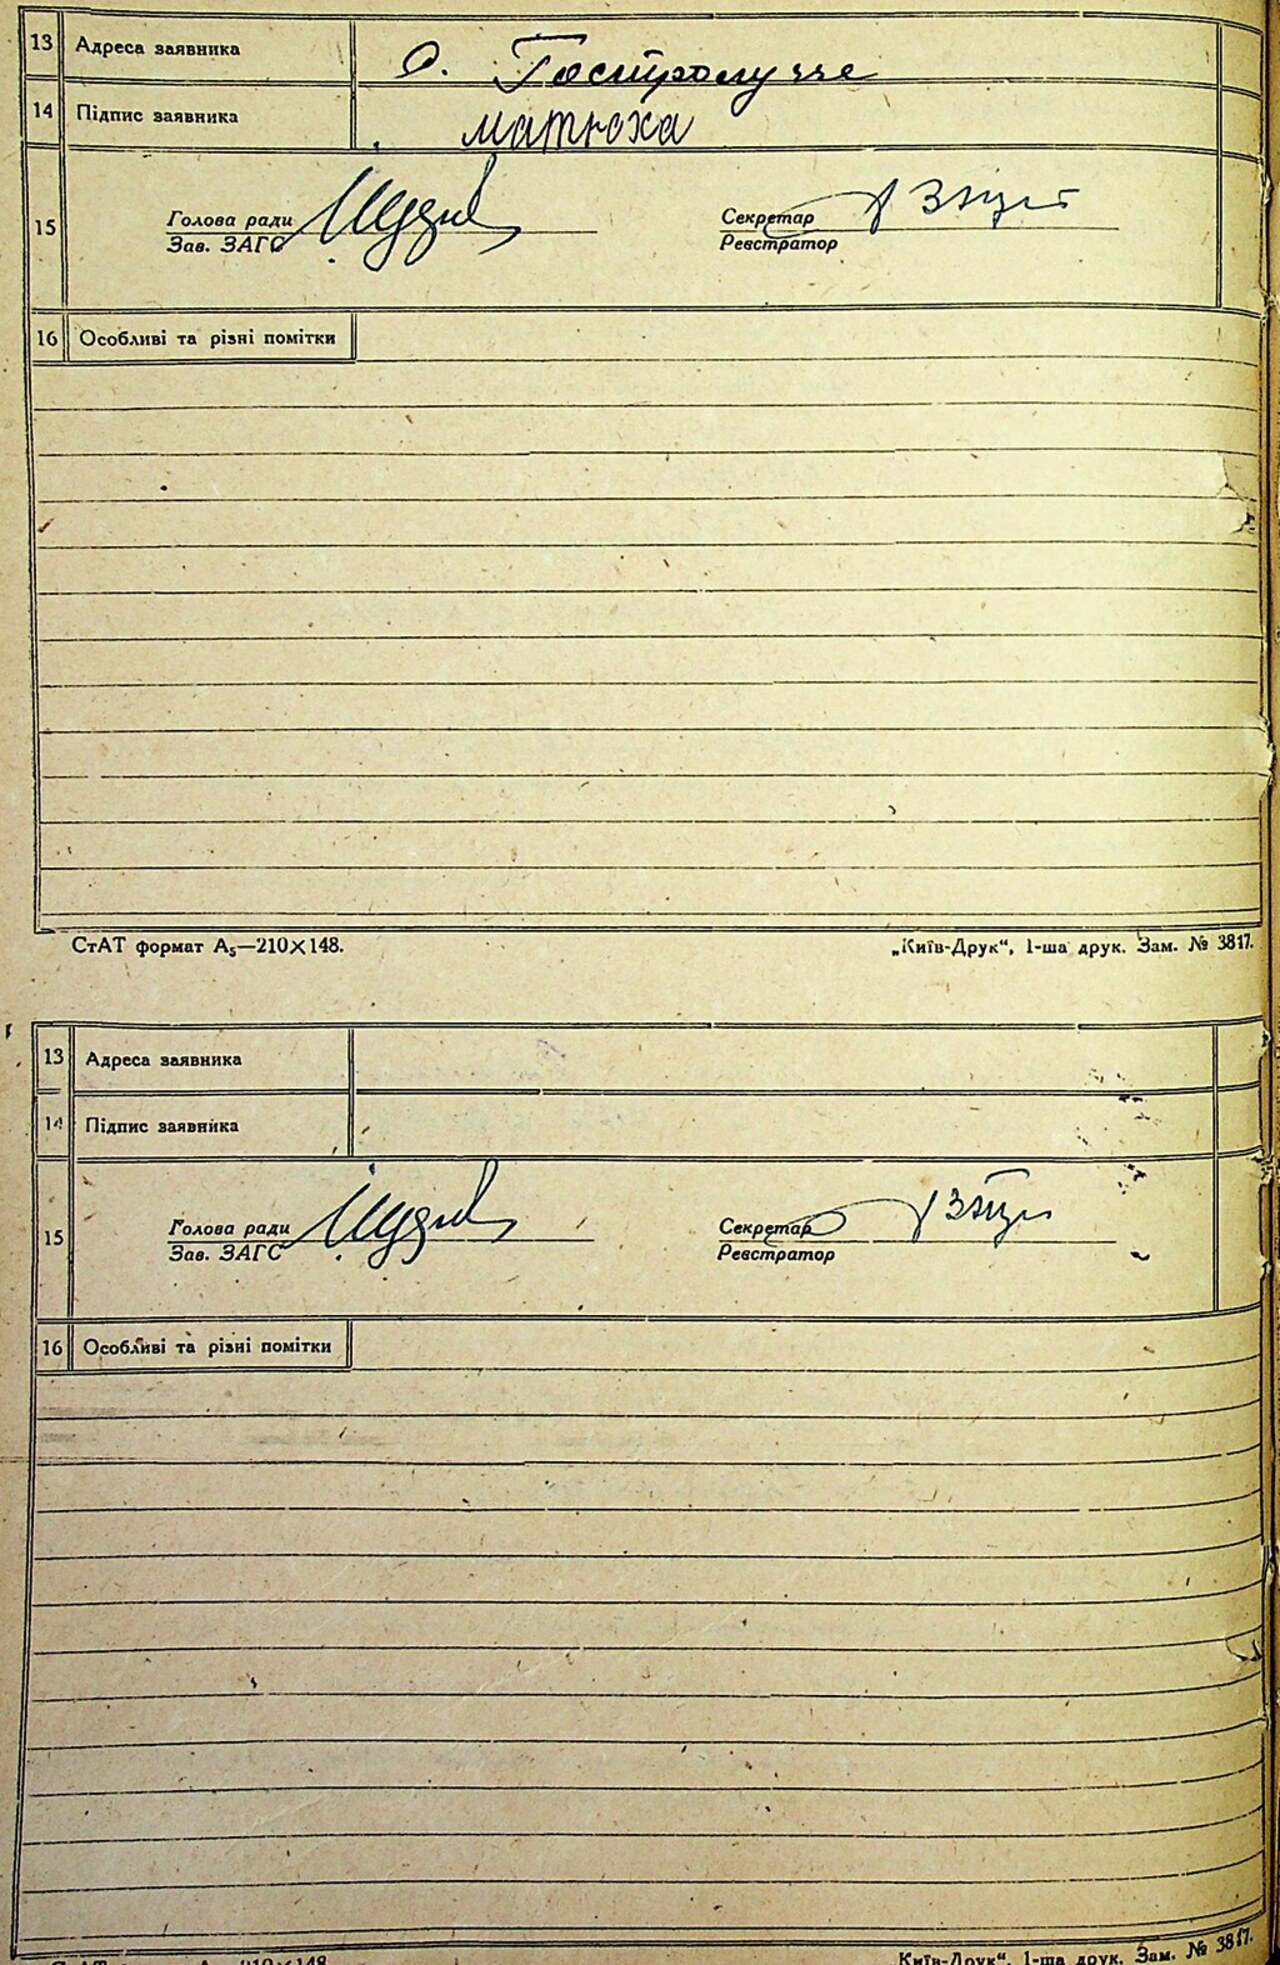 13 Адреса заявника с. Гостролуччє
14 Підпис заявника Матюха
15 Голова ради Секретар
Зав. ЗАГС Реєстратор
16 Особливі та різні помітки
СтАТ формат А₅—210×148. „Київ-Друк“, 1-ша друк. Зам. № 3817.
13 Адреса заявника
14 Підпис заявника
15 Голова ради Секретар
Зав. ЗАГС Реєстратор
16 Особливі та різні помітки
СтАТ формат А₅—210×148. „Київ-Друк“, 1-ша друк. Зам. № 3817.